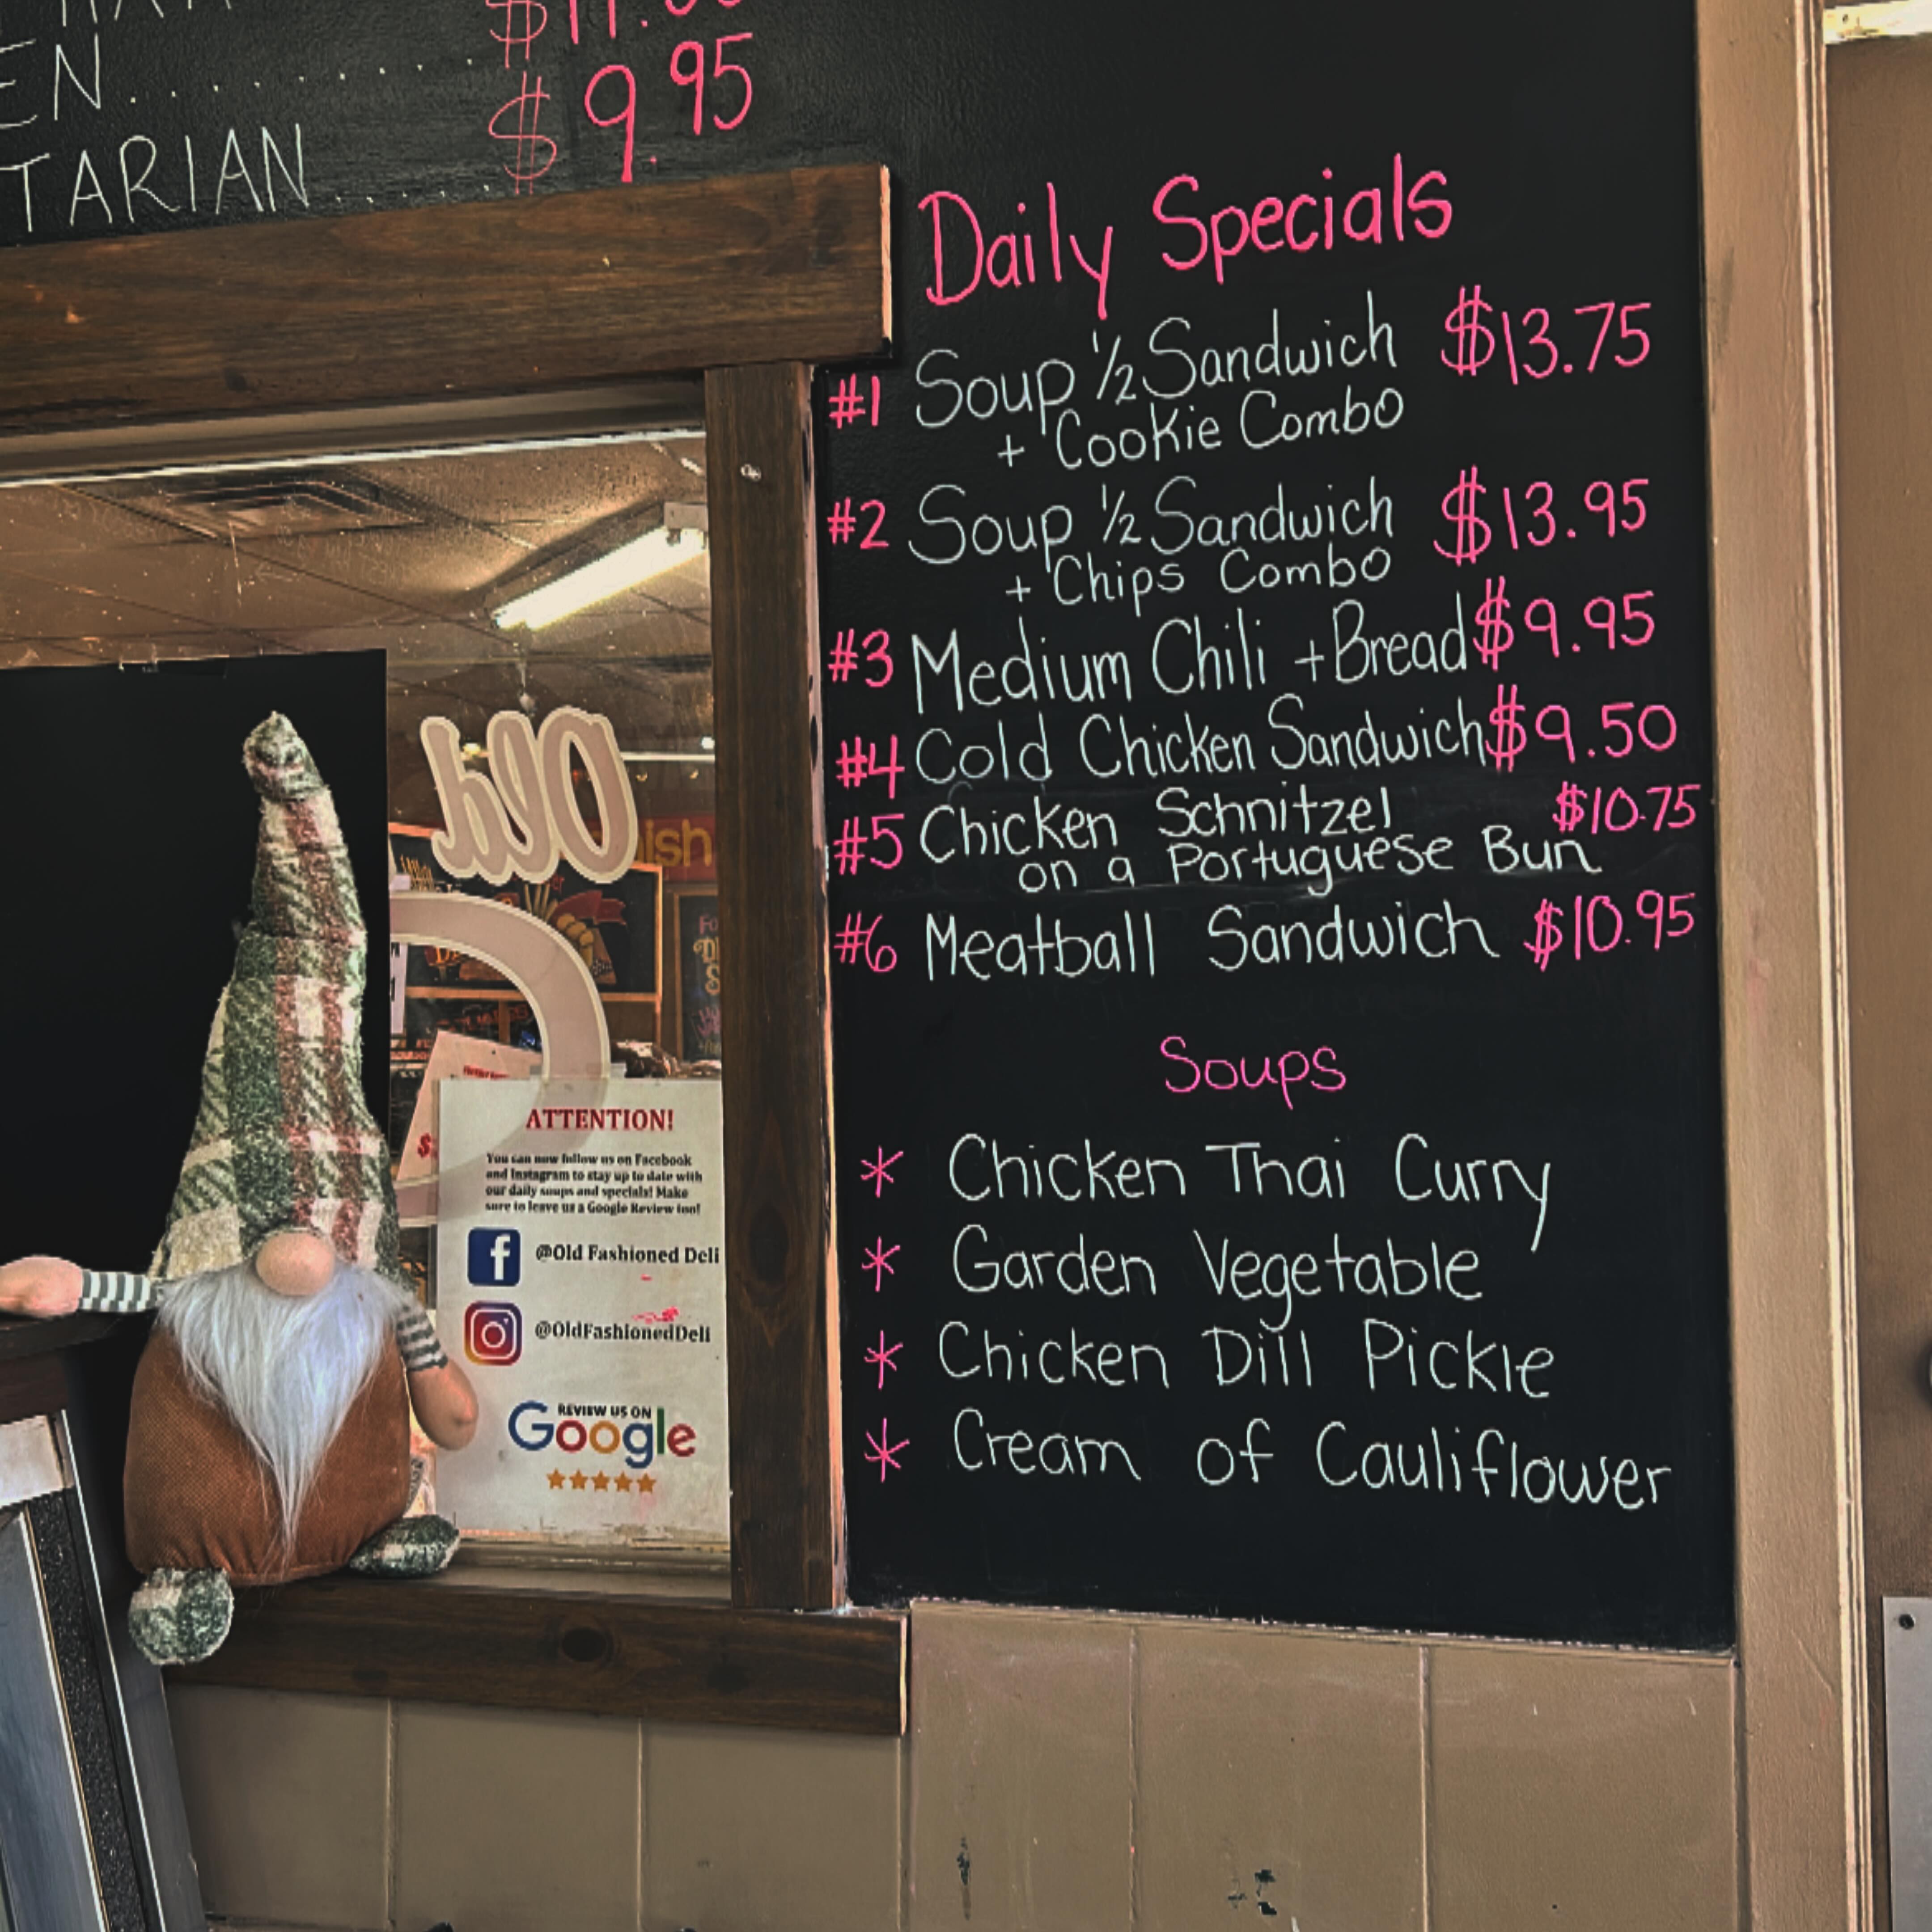 $ 9.95
TARIAN..........
Daily Specials
#1 Soup ½ Sandwich $13.75
+ Cookie Combo
#2 Soup ½ Sandwich $13.95
+ Chips Combo
#3 Medium Chili + Bread $9.95
#4 Cold Chicken Sandwich $9.50
#5 Chicken Schnitzel $10.75
on a Portuguese Bun
#6 Meatball Sandwich $10.95
Soups
* Chicken Thai Curry
* Garden Vegetable
* Chicken Dill Pickle
* Cream of Cauliflower
Old
ATTENTION!
You can now follow us on Facebook
and Instagram to stay up to date with
our daily soups and specials! Make
sure to leave us a Google Review too!
@Old Fashioned Deli
@OldFashionedDeli
REVIEW US ON
Google